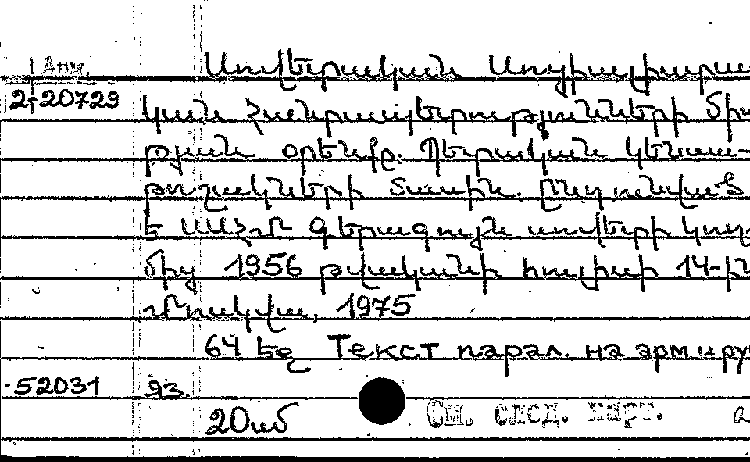 Арм.
Սովետական Սոցիալիստա
2-20729
կան Հանրապետությունների Միու
թյան օրենքը. Պետական կենսա-
թոշակների մասին. Ընդունված
է ՍՍՀՄ Գերագույն սովետի կող
մից 1956 թվականի հուլիսի 14-ին
Մոսկվա, 1975
64 եջ Текст парал. на арм и рус
52031 яз.
20ամ См. след. карт. а